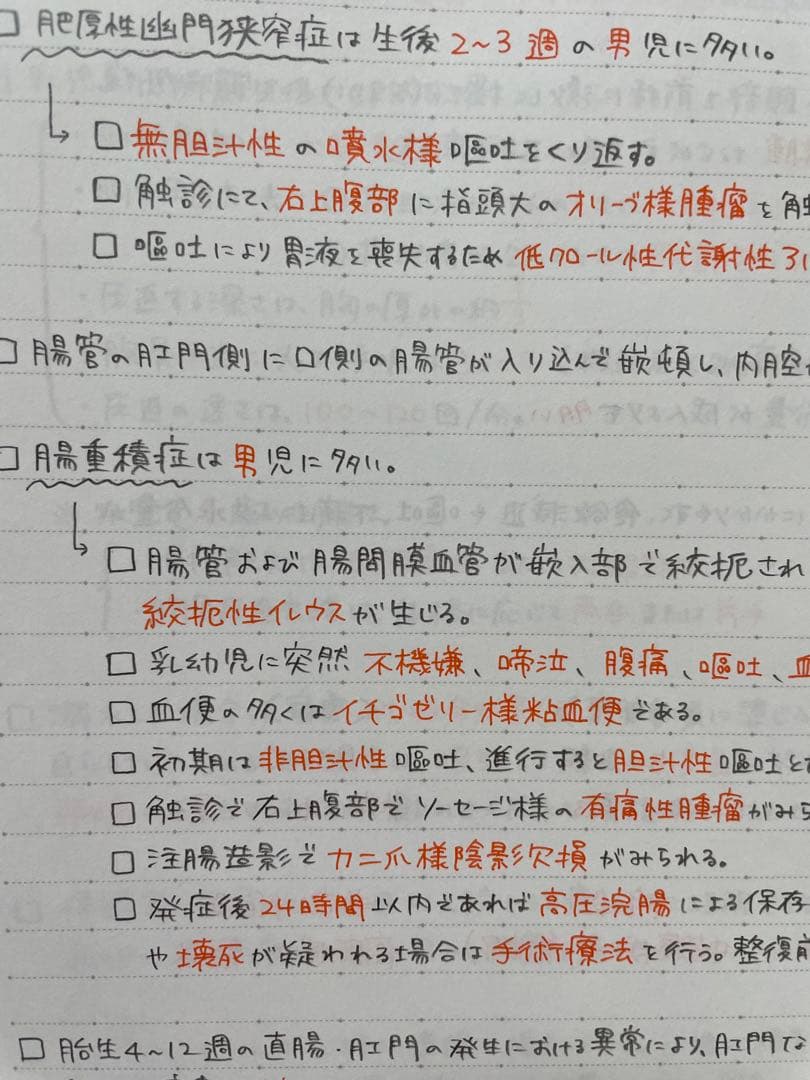 □ 肥厚性幽門狭窄症は生後2~3週の男児に多い。
□ 無胆汁性の噴水様嘔吐をくり返す。
□ 触診にて、右上腹部に指頭大のオリーブ様腫瘤を触
□ 嘔吐により胃液を喪失するため低クロール性代謝性アル
□ 腸管の肛門側に口側の腸管が入り込んで嵌頓し、内腔
□ 腸重積症は男児に多い。
□ 腸管および腸間膜血管が嵌入部で絞扼され
絞扼性イレウスが生じる。
□ 乳幼児に突然 不機嫌、啼泣、腹痛、嘔吐、血
□ 血便の多くはイチゴゼリー様粘血便である。
□ 初期は非胆汁性嘔吐、進行すると胆汁性嘔吐と
□ 触診で右上腹部でソーセージ様の有痛性腫瘤がみら
□ 注腸造影でカニ爪様陰影欠損がみられる。
□ 発症後24時間以内であれば高圧浣腸による保存
や壊死が疑われる場合は手術療法を行う。整復前
□ 胎生4~12週の直腸・肛門の発生における異常により、肛門